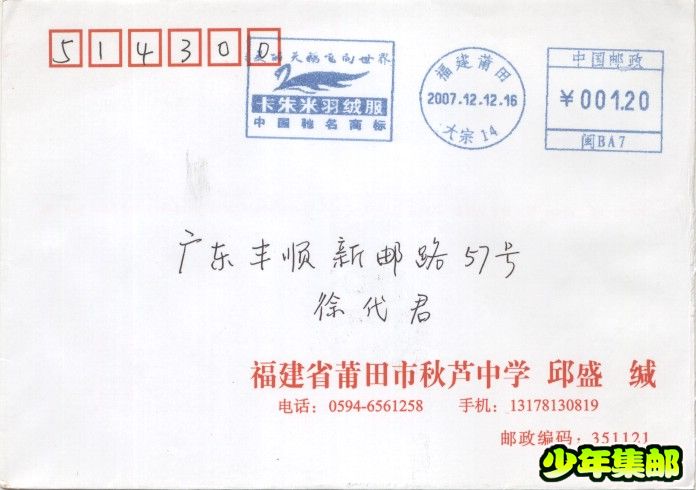 514300
美丽天鹅飞向世界
卡朱米羽绒服
中国驰名商标
福建莆田
2007.12.12.16
大宗14
中国邮政
¥001.20
闽BA7
广东丰顺新邮路57号
徐代君
福建省莆田市秋芦中学 邱盛 缄
电话：0594-6561258 手机：13178130819
邮政编码：351121
少年集邮